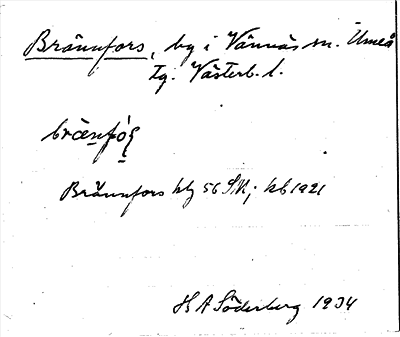 Brännfors, by i Vännäs sn. Umeå
tg. Västerb. l.
Brännfors kbg 56 SK; kb 1921
H A Söderberg 1934